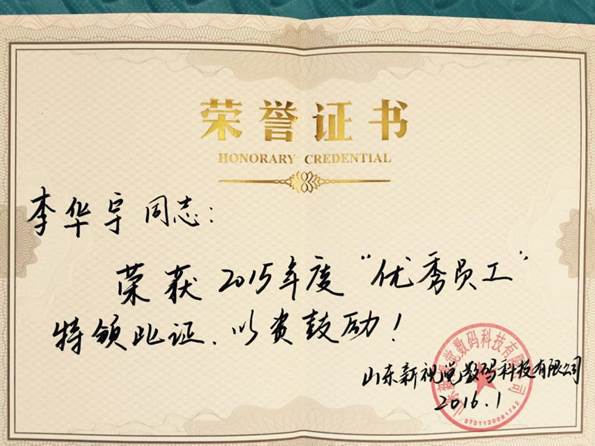 荣誉证书
HONORARY CREDENTIAL
李华宇同志：
荣获2015年度“优秀员工”
特领此证、以资鼓励！
山东新视觉数码科技有限公司
2016.1
山东新视觉数码科技有限公司